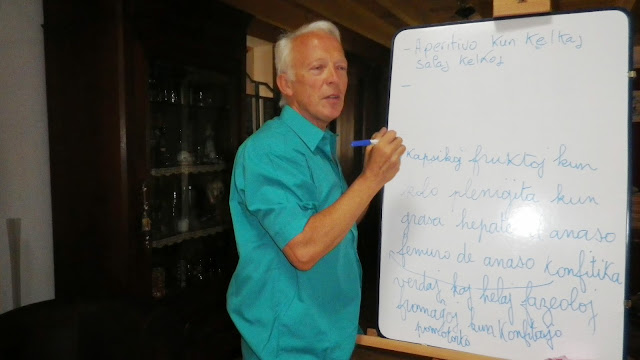 - Aperitivo kun kelkaj
salaj keksoj
-
Kapsikoj fruktoj kun
plenigita kun
grasa hepato anaso
femuro de anaso konfitita
verdaj kaj helaj fazeoloj
fromaĝoj kun konfitaĵo
pomotorto